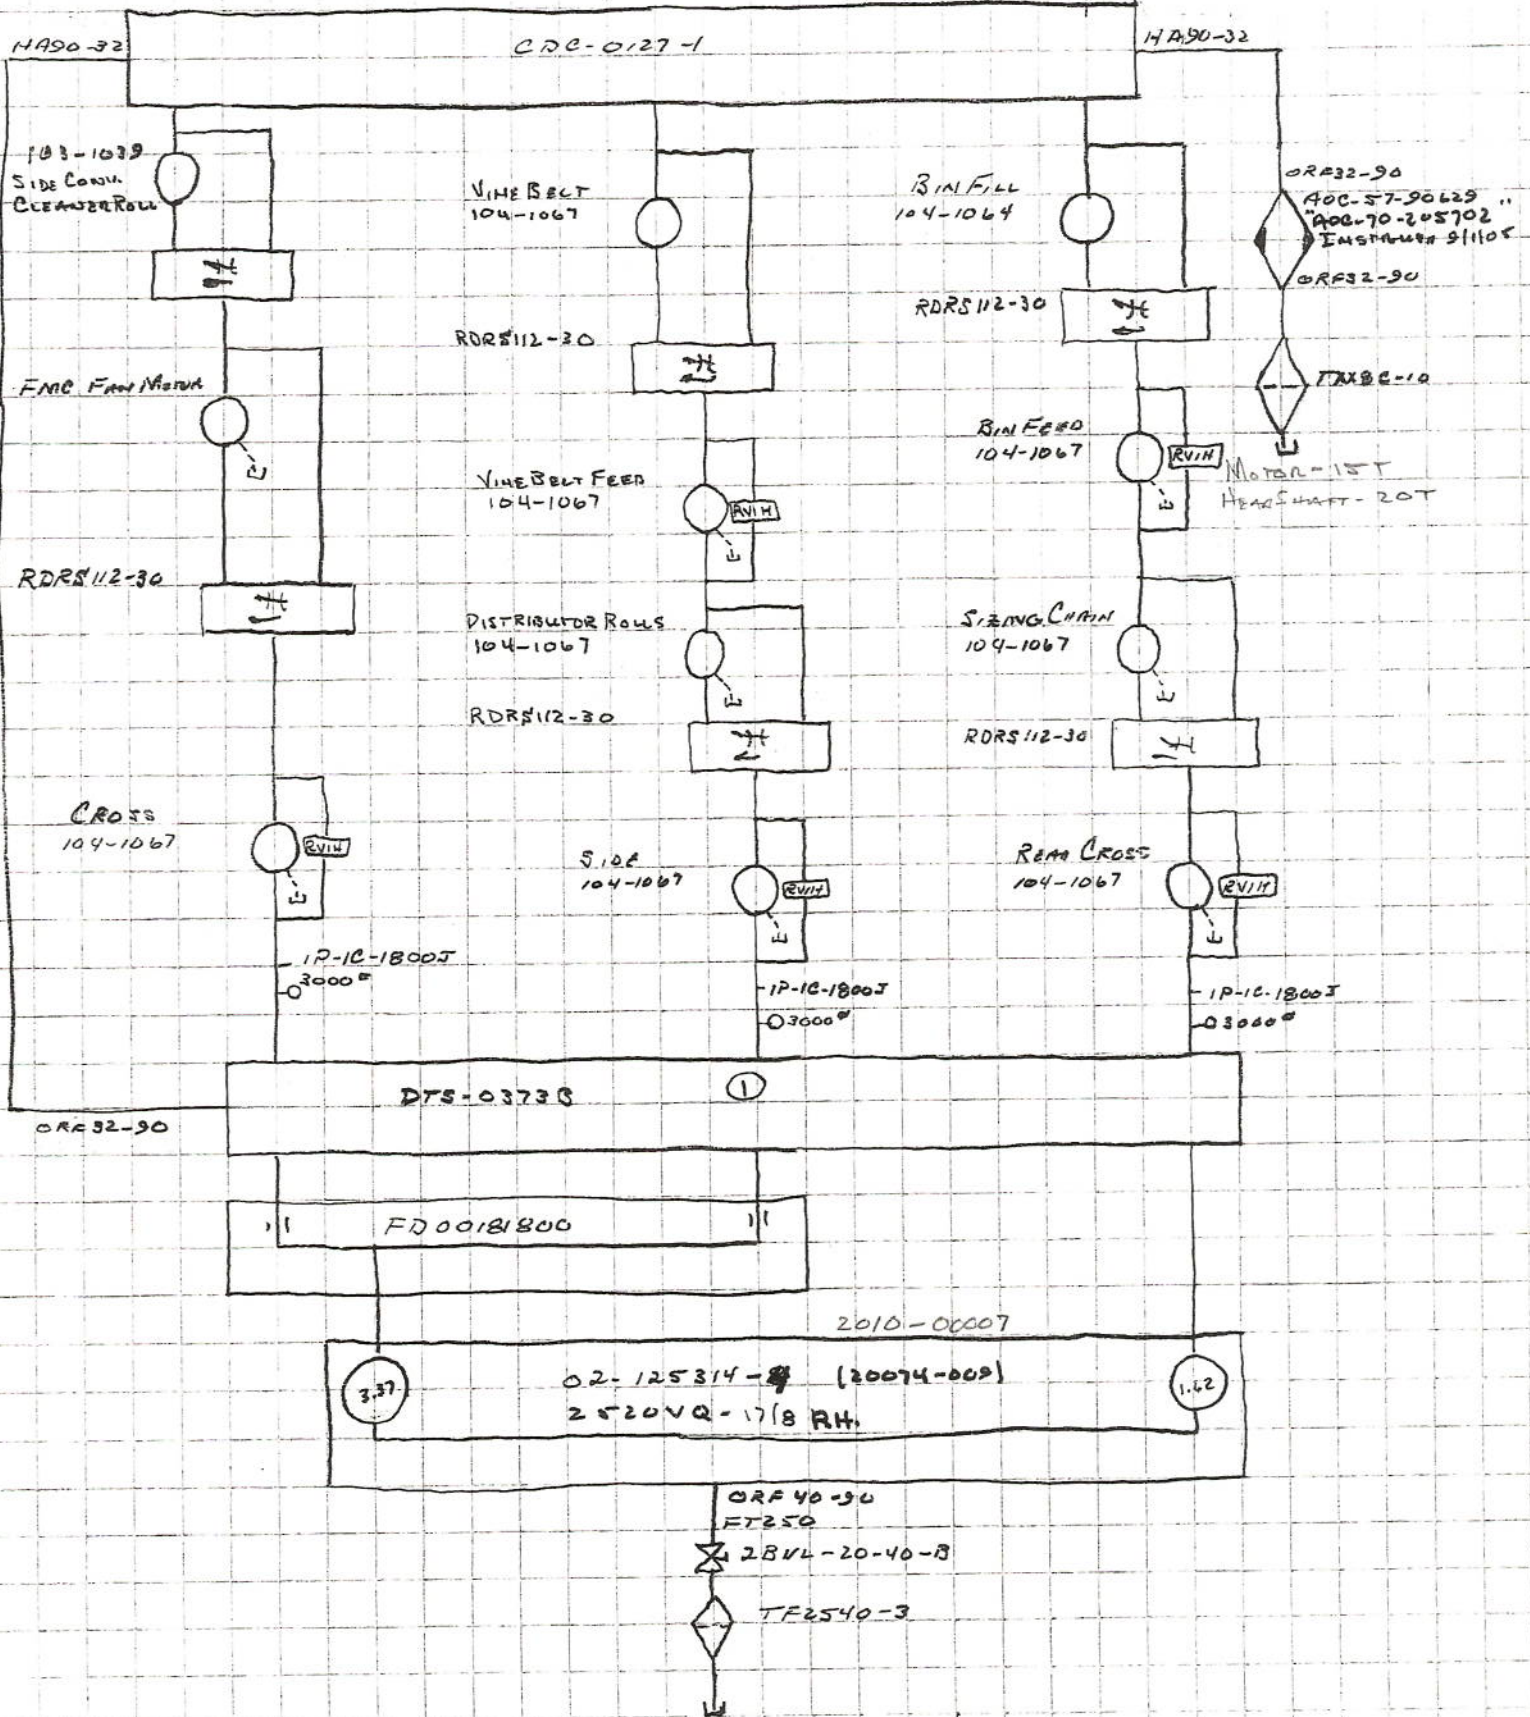 HA90-32
CDC-0127-1
HA90-32
103-1039
SIDE CONV.
CLEANER ROLL
VINE BELT
104-1067
BIN FILL
104-1064
ORF32-90
AOC-57-90629
"AOC-70-205702"
9/1/05
ORF32-90
RDRS112-30
RDRS112-30
FMC FAN MOTOR
TXX8C-10
BIN FEED
104-1067
RV1H
MOTOR-15T
HEADSHAFT-20T
VINE BELT FEED
104-1067
RV1H
RDRS112-30
DISTRIBUTOR ROLLS
104-1067
SIZING CHAIN
104-1067
RDRS112-30
RDRS112-30
CROSS
104-1067
RV1H
SIDE
104-1067
RV1H
REAR CROSS
104-1067
RV1H
1P-1C-1800J
3000#
1P-1C-1800J
3000#
1P-1C-1800J
3000#
DTS-0373B
1
ORF32-90
FD00181800
2010-00007
3.37
02-125314-4 (20074-009)
2520VQ-17/8 RH.
1.62
ORF40-90
FT250
2BVL-20-40-B
TF2540-3